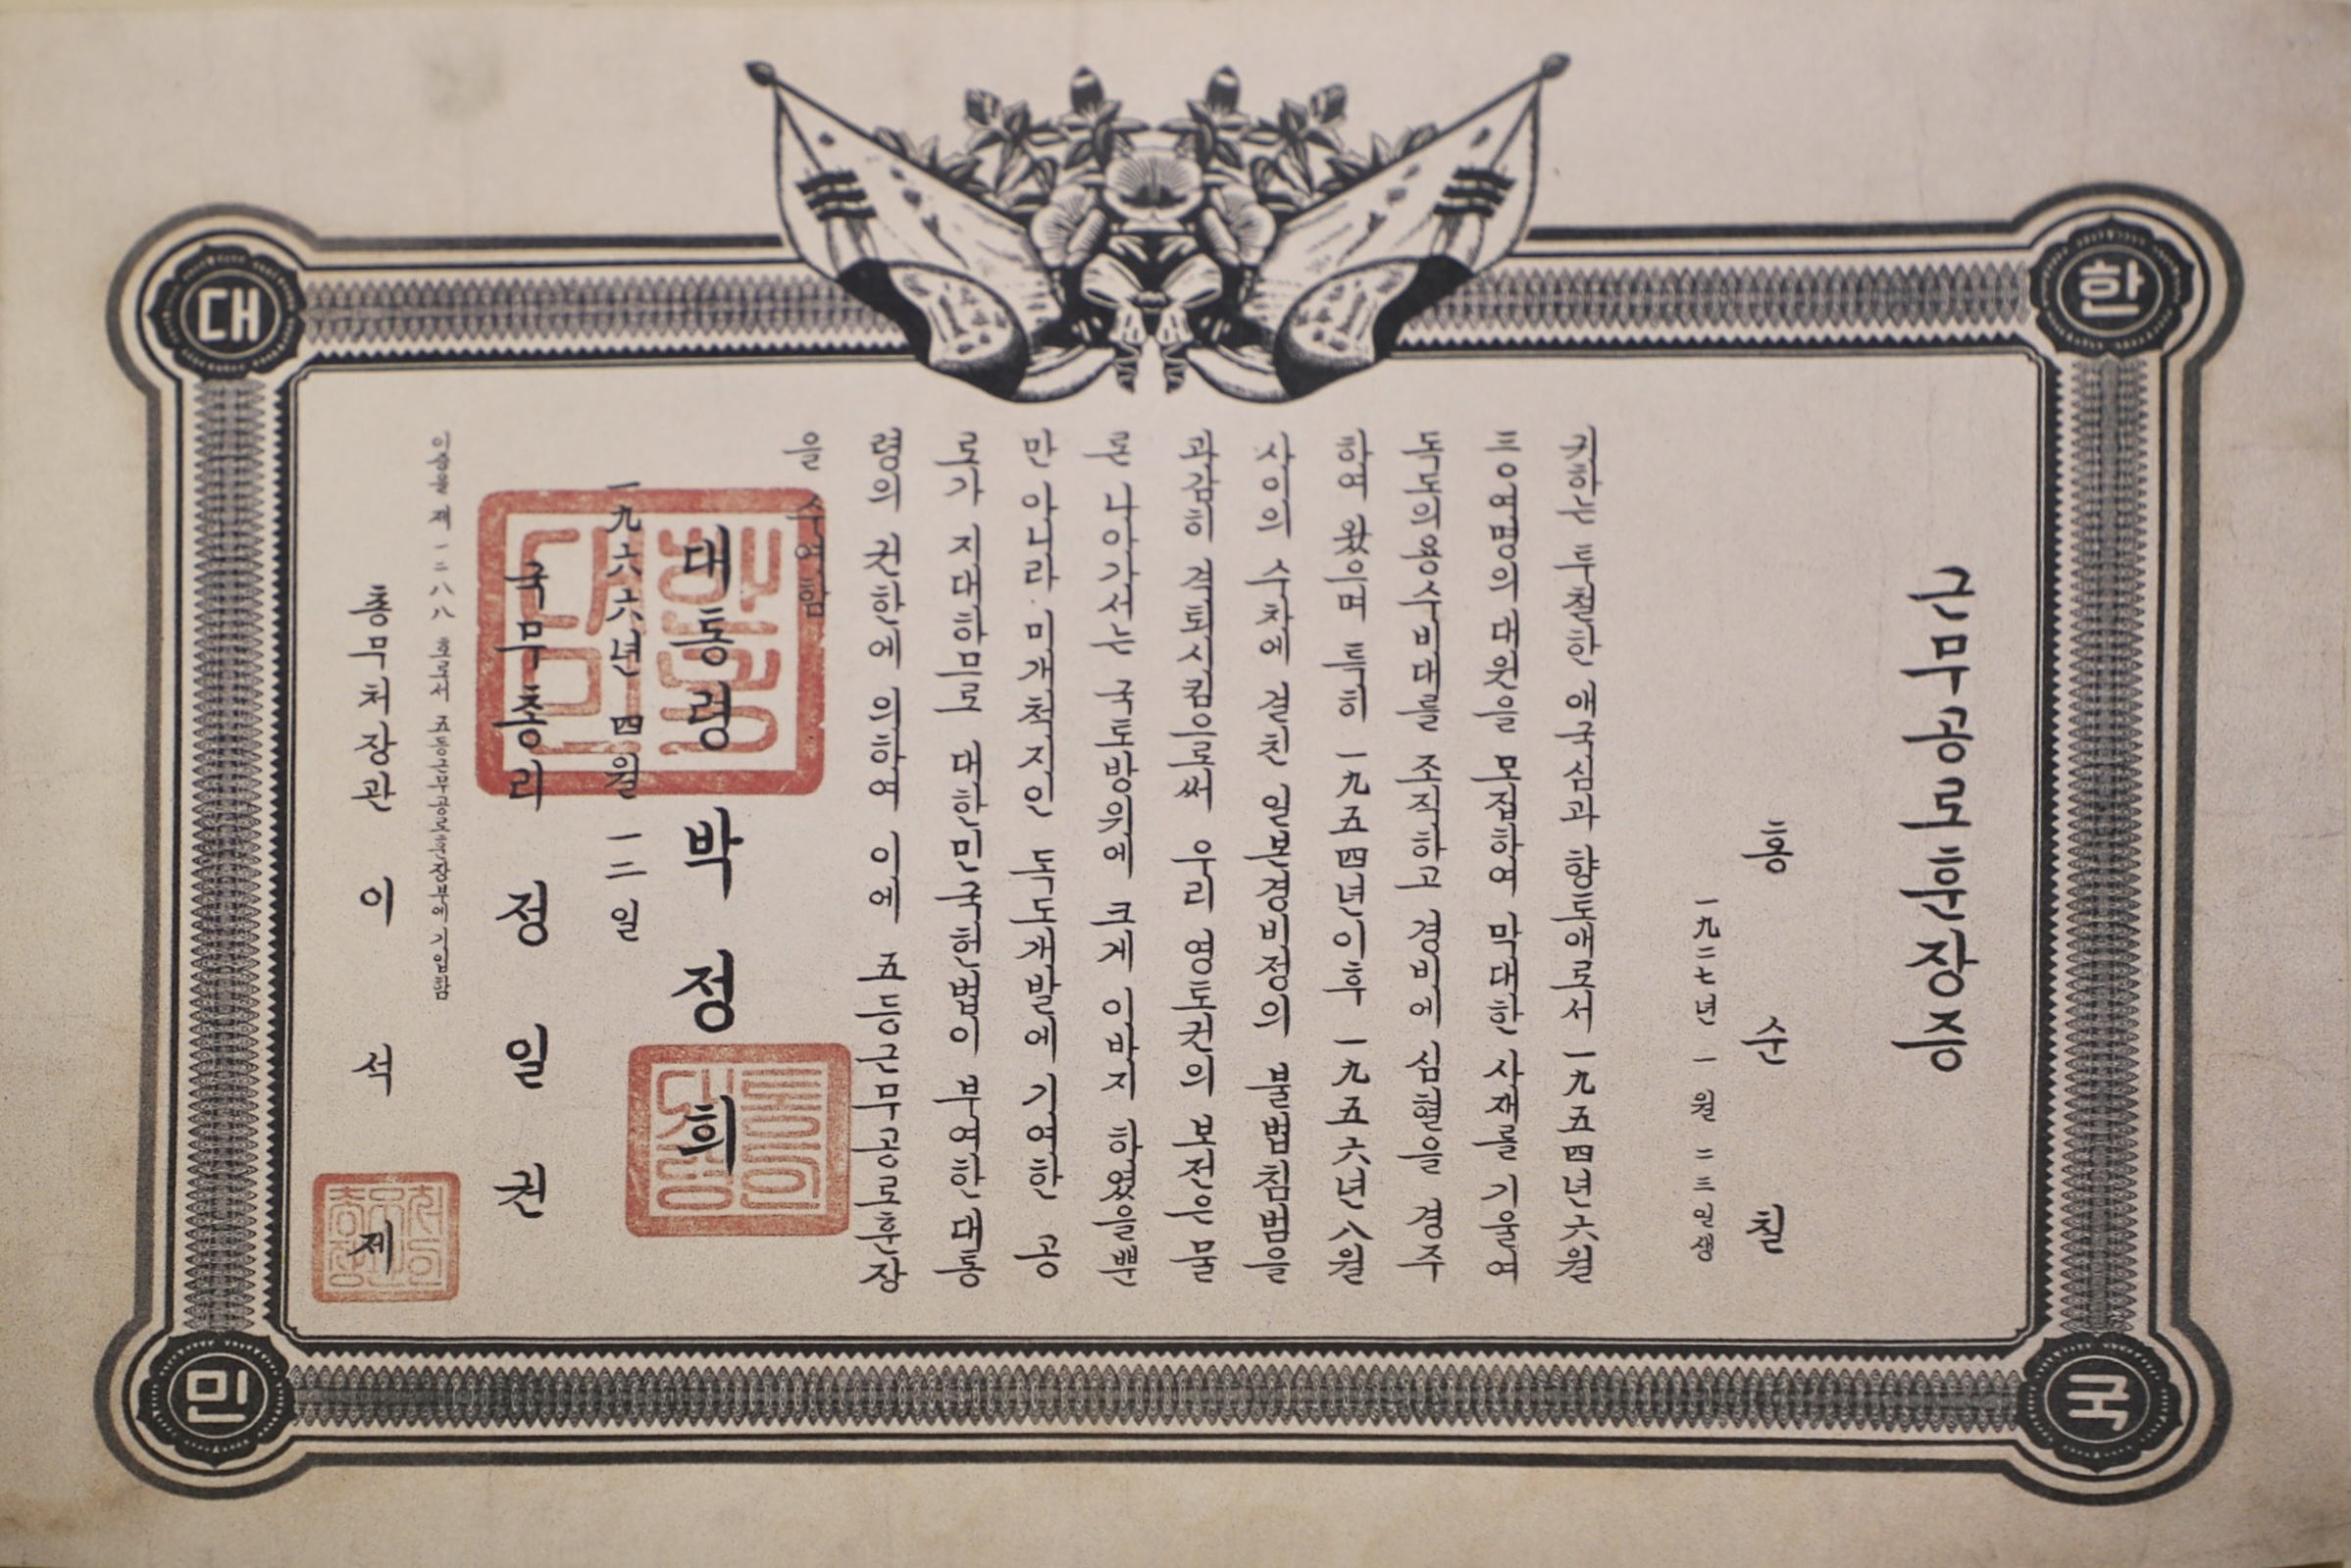 대
한
민
국
근무공로훈장증
홍 순 칠
一九二七년 一월 二三일생
귀하는 투철한 애국심과 향토애로서 一九五四년六월
三○여명의 대원을 모집하여 막대한 사재를 기울여
독도의용수비대를 조직하고 경비에 심혈을 경주
하여 왔으며 특히 一九五四년이후 一九五六년八월
사이의 수차에 걸친 일본경비정의 불법침범을
과감히 격퇴시킴으로써 우리 영토권의 보전은 물
론 나아가서는 국토방위에 크게 이바지 하였을뿐
만 아니라 미개척지인 독도개발에 기여한 공
로가 지대하므로 대한민국헌법이 부여한 대통
령의 권한에 의하여 이에 五등근무공로훈장
을 수여함
대통령 박 정 희
一九六六년 四월 一二일
국무총리 정 일 권
이증을 제 一二八八 호로서 五등근무공로훈장부에 기입함
총무처장관 이 석 제